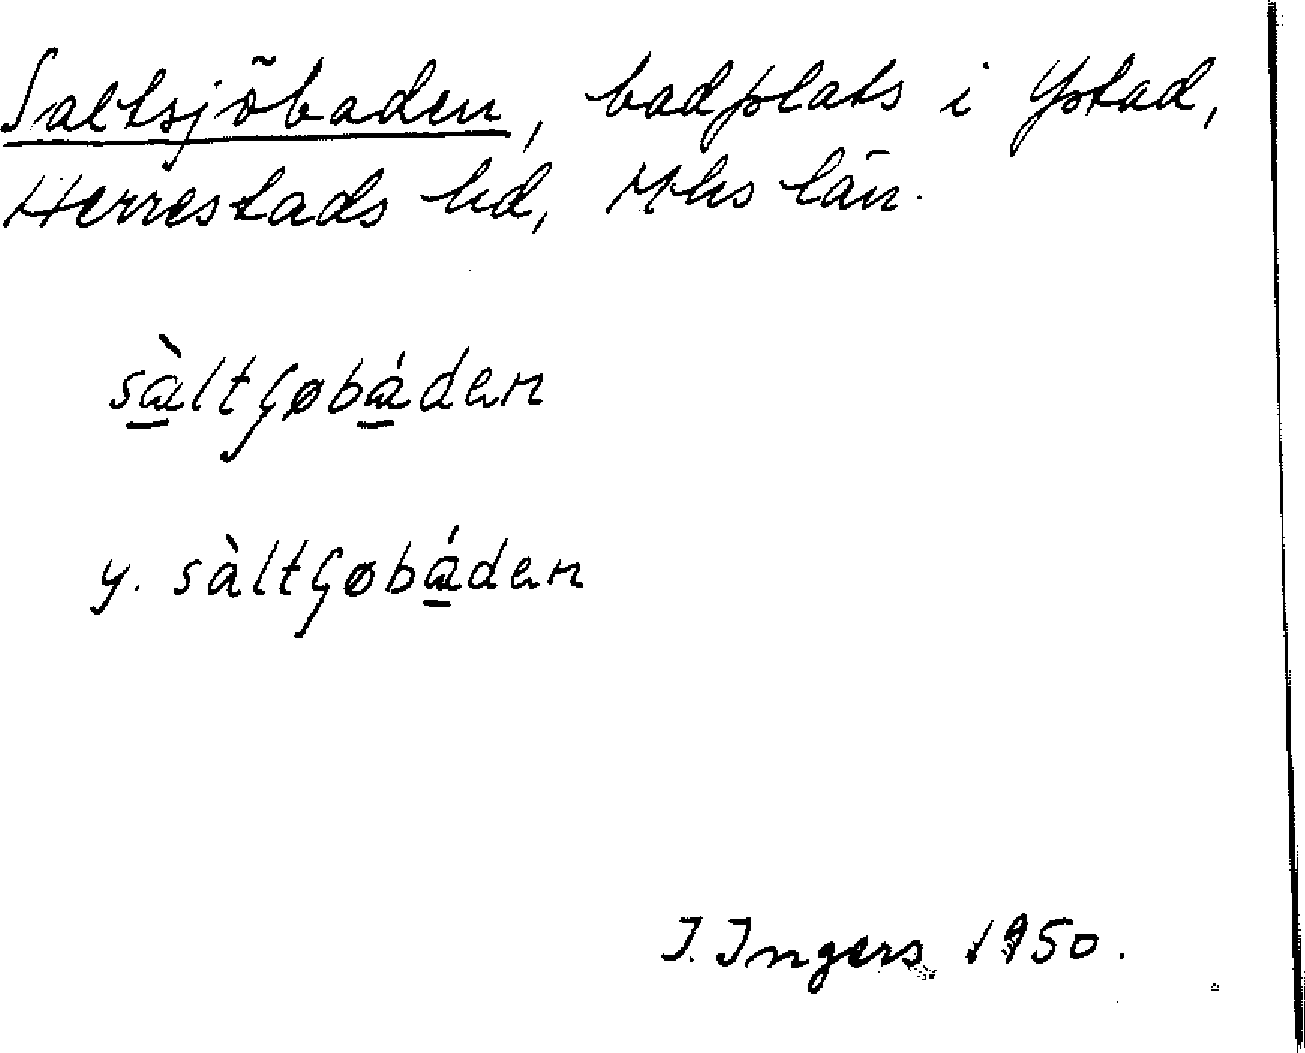 Saltsjöbaden, badplats i Ystad,
Herrestads hd, Mhs län.
sàltʃøbáden
y. sàltʃøbáden
I. Ingers 1950.